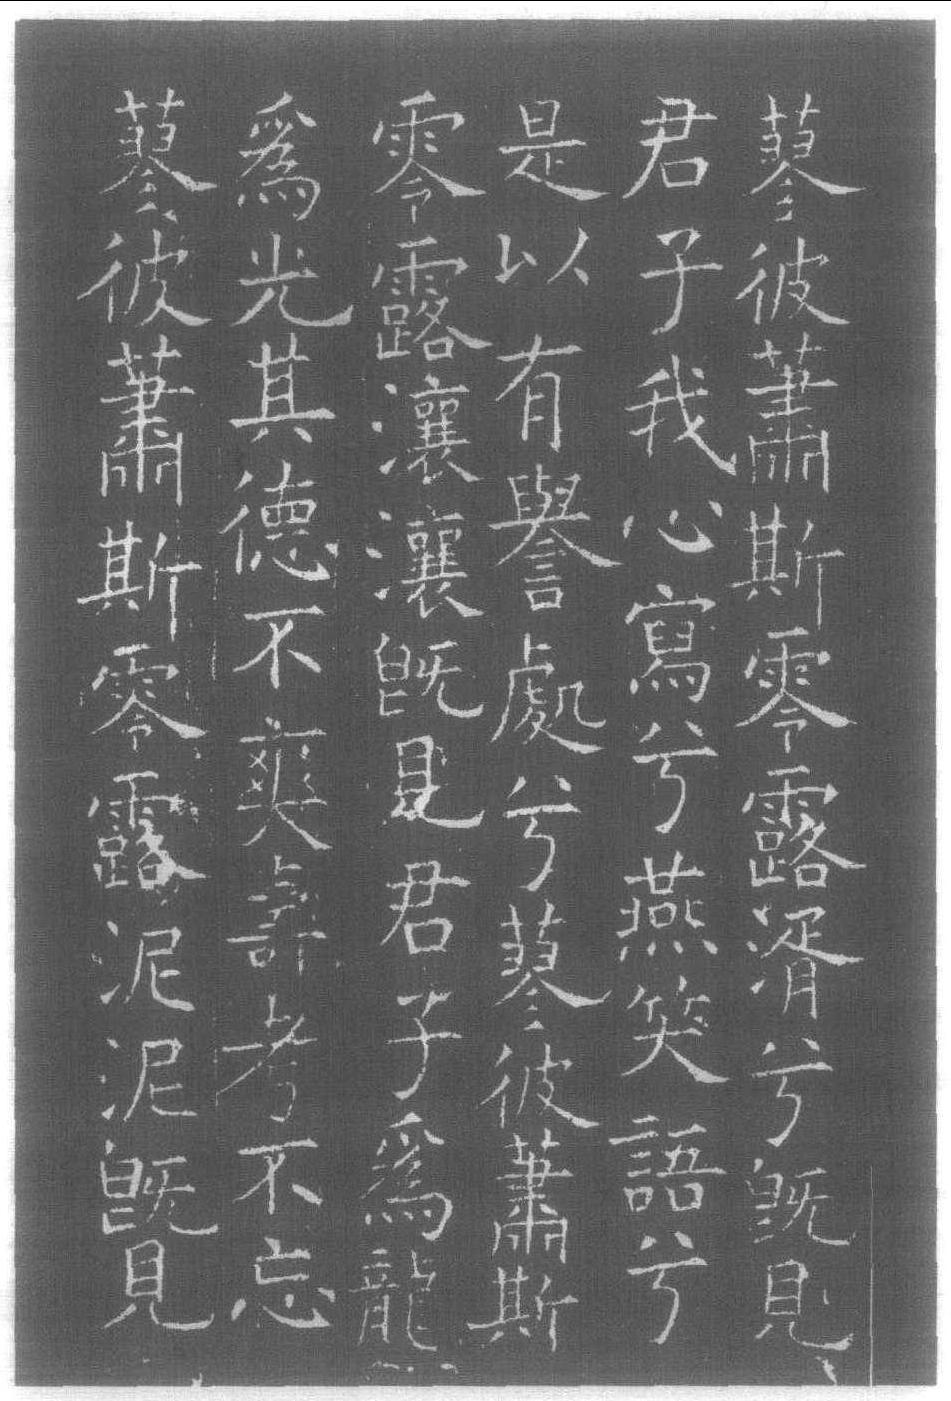 蓼彼蕭斯零露湑兮旣見
君子我心寫兮燕笑語兮
是以有譽處兮蓼彼蕭斯
零露瀼瀼旣見君子爲龍
爲光其德不爽壽考不忘
蓼彼蕭斯零露泥泥旣見